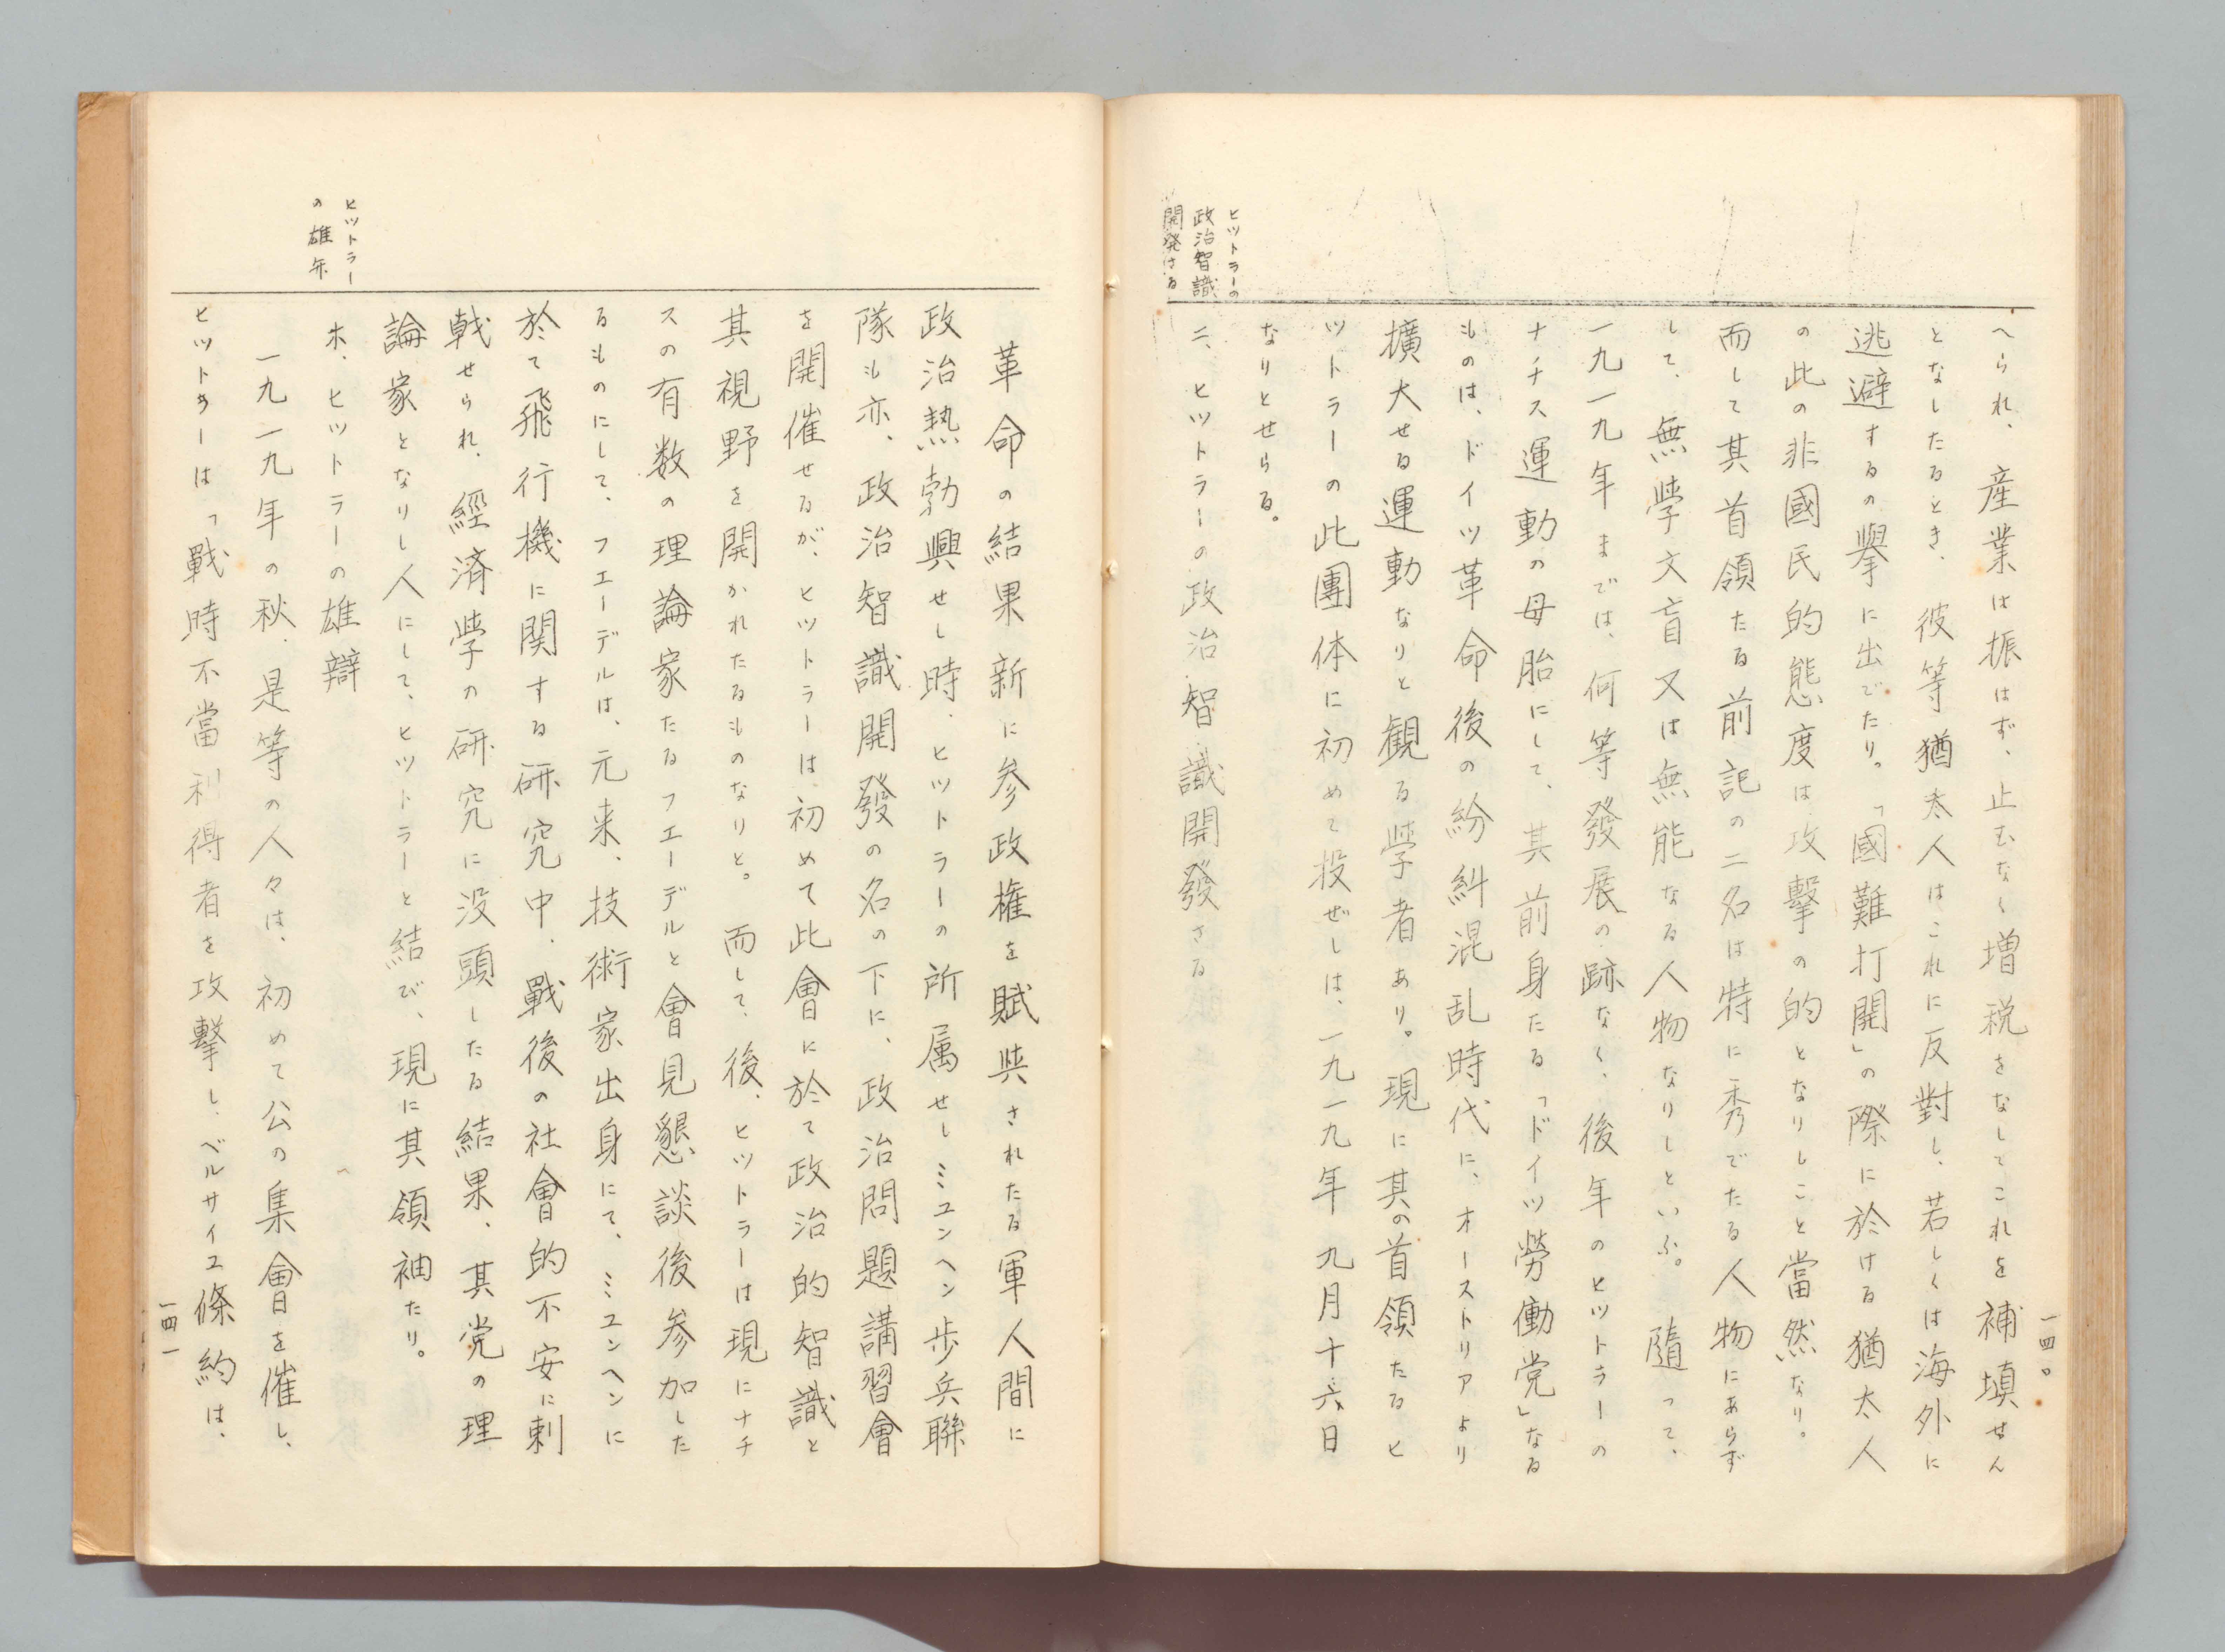 一四〇
へられ、産業は振はず、止むなく増税をなしてこれを補填せん
となしたるとき、彼等猶太人はこれに反對し、若しくは海外に
逃避するの擧に出でたり。「國難打開」の際に於ける猶太人
の此の非國民的態度は攻擊の的となりしこと當然なり。
而して其首領たる前記の二名は特に秀でたる人物にあらず
して、無学文盲又は無能なる人物なりしといふ。隨って、
一九一九年までは、何等發展の跡なく、後年のヒットラーの
ナチス運動の母胎にして、其前身たる「ドイツ勞働党」なる
ものは、ドイツ革命後の紛糾混乱時代に、オーストリアより
擴大せる運動なりと観る学者あり。現に其の首領たるヒ
ットラーの此團体に初めて投ぜしは、一九一九年九月十六日
なりとせらる。
ヒットラーの
政治智識
開発さる
二、ヒットラーの政治智識開發さる
革命の結果新に参政権を賦與されたる軍人間に
政治熱勃興せし時、ヒットラーの所属せしミュンヘン歩兵聯
隊も亦、政治智識開發の名の下に、政治問題講習會
を開催せるが、ヒットラーは初めて此會に於て政治的智識と
其視野を開かれたるものなりと。而して、後、ヒットラーは現にナチ
スの有数の理論家たるフエーデルと會見懇談後参加した
るものにして、フエーデルは、元来、技術家出身にて、ミュンヘンに
於て飛行機に関する研究中、戰後の社會的不安に刺
戟せられ、經済学の研究に没頭したる結果、其党の理
論家となりし人にして、ヒットラーと結び、現に其領袖たり。
ヒットラー
の雄弁
ホ、ヒットラーの雄辯
一九一九年の秋、是等の人々は、初めて公の集會を催し、
ヒットラーは「戰時不當利得者を攻擊し、ベルサイユ條約は、
一四一